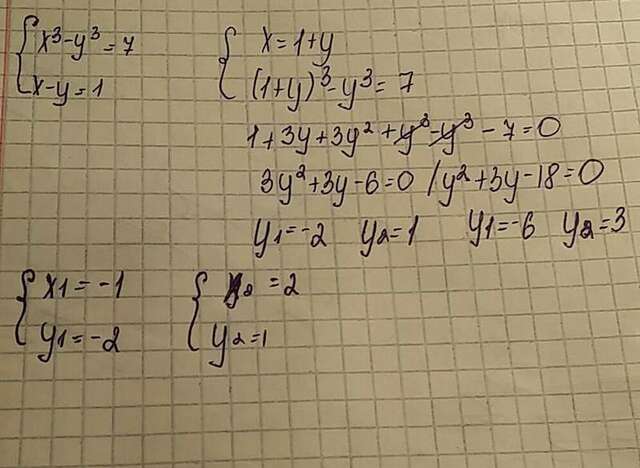 x³-y³=7
x-y=1
x=1+y
(1+y)³-y³=7
1+3y+3y²+y³-y³-7=0
3y²+3y-6=0 / y²+3y-18=0
y1=-2 y2=1 y1=-6 y2=3
x1=-1
y1=-2
x2=2
y2=1